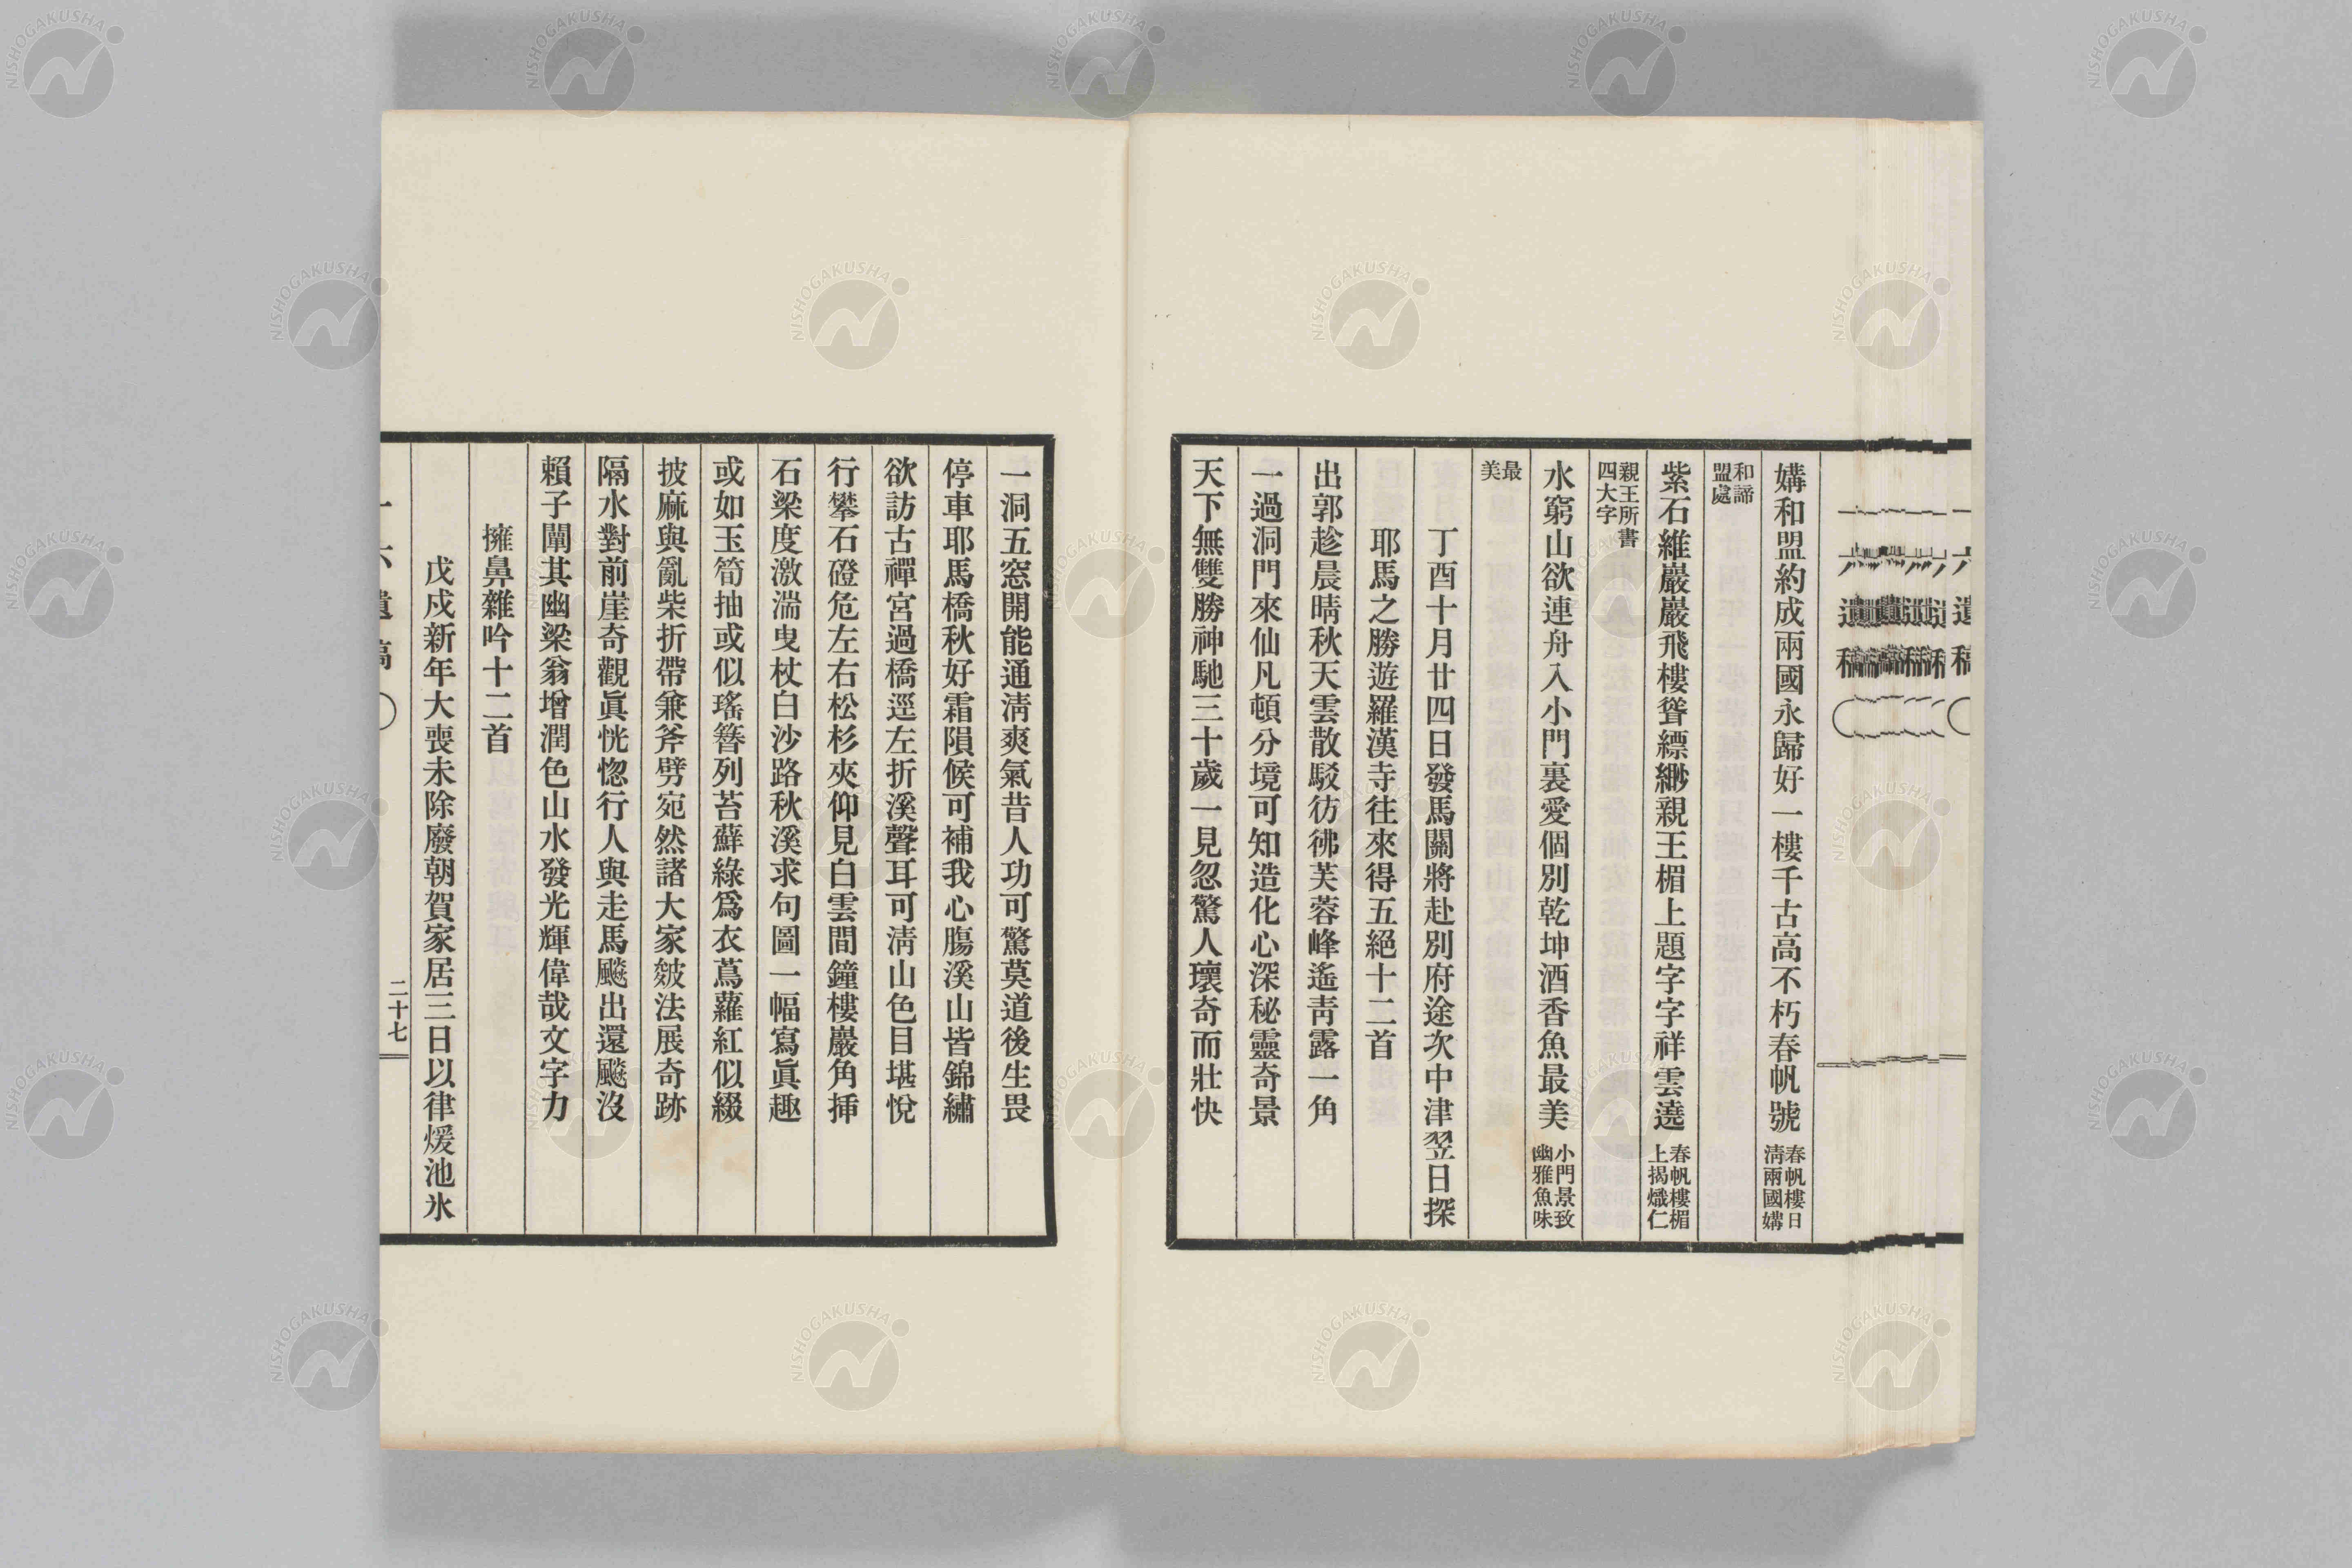 媾和盟約成兩國永歸好一樓千古高不朽春帆號春帆樓日淸兩國媾
和諦盟處
紫石維巖巖飛樓聳縹緲親王楣上題字字祥雲遶春帆樓楣上揭熾仁
親王所書四大字
水窮山欲連舟入小門裏愛個別乾坤酒香魚最美小門景致幽雅魚味
最美
丁酉十月廿四日發馬關將赴別府途次中津翌日探
耶馬之勝遊羅漢寺往來得五絕十二首
出郭趁晨晴秋天雲散駁彷彿芙蓉峰遙靑露一角
一過洞門來仙凡頓分境可知造化心深秘靈奇景
天下無雙勝神馳三十歲一見忽驚人瓌奇而壯快
一洞五窓開能通淸爽氣昔人功可驚莫道後生畏
停車耶馬橋秋好霜隕候可補我心膓溪山皆錦繡
欲訪古禪宮過橋逕左折溪聲耳可淸山色目堪悅
行攀石磴危左右松杉夾仰見白雲間鐘樓巖角挿
石梁度激湍曳杖白沙路秋溪求句圖一幅寫眞趣
或如玉筍抽或似瑤簪列苔蘚綠爲衣蔦蘿紅似綴
披麻與亂柴折帶兼斧劈宛然諸大家皴法展奇跡
隔水對前崖奇觀眞恍惚行人與走馬飈出還飈沒
賴子闡其幽梁翁增潤色山水發光輝偉哉文字力
擁鼻雜吟十二首
戊戍新年大喪未除廢朝賀家居三日以律煖池氷
一六遺稿
二十七
NISHOGAKUSHA